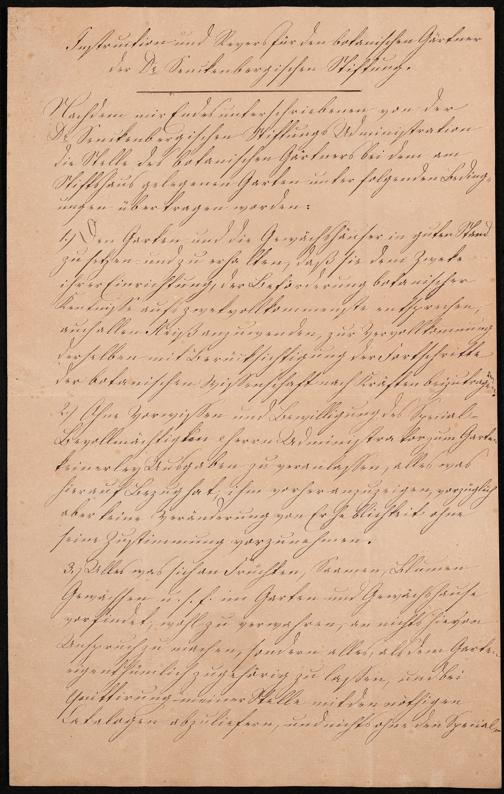 Instruction und Revers für den botanischen Gärtner
der Dr Senckenbergischen Stiftung.
Nachdem mir Endesunterschriebenen von der
Dr Senckenbergischen Stiftungs Administration
die Stelle des botanischen Gärtners bei dem am
Stiftshaus gelegenen Garten unter folgenden Beding-
ungen übertragen worden:
1.) Den Garten und die Gewächshäuser in guten Stand
zu setzen und zu erhalten, daß sie dem Zwecke
ihrer Einrichtung, der Beförderung botanischer
Kentnisse aufs zweckvollkommenste entsprechen,
auch allen Fleiß anzuwenden, zur Vervollkommnung
derselben mit Berücksichtigung der Fortschritte
der botanischen Wissenschaft nach Kräften beizutragen.
2.) Ohne Vorwissen und Bewilligung des Special-
Bevollmächtigten Herrn Administrators zum Garten
keinerley Ausgaben zu veranlassen, alles was
hierauf Bezug hat, ihm vorher anzuzeigen, vorzüglich
aber keine Veränderung von Erheblichkeit ohne
seine Zustimmung vorzunehmen.
3.) Alles was sich an Früchten, Saamen, Blumen
Gewächsen u. s. f. im Garten und Gewächshause
vorfindet, wohl zu verwahren, an nichts hievon
Anspruch zu machen, sondern alles, als dem Garten
eigenthümlich zugehörig zu lassen, und bei
Quittirung meiner Stelle mit den nöthigen
Catalogen abzuliefern, und nichts ohne den Special-